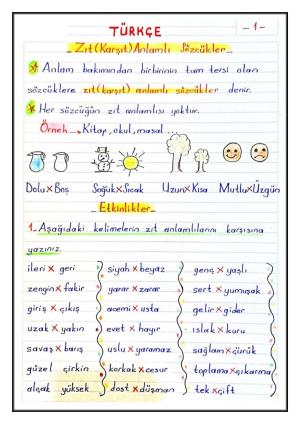 TÜRKÇE
- 1 -
Zıt (Karşıt) Anlamlı Sözcükler
* Anlam bakımından birbirinin tam tersi olan
sözcüklere zıt (karşıt) anlamlı sözcükler denir.
* Her sözcüğün zıt anlamlısı yoktur.
Örnek → Kitap, okul, masal ...
Dolu x Boş Soğuk x Sıcak Uzun x Kısa Mutlu x Üzgün
Etkinlikler
1- Aşağıdaki kelimelerin zıt anlamlılarını karşısına
yazınız.
ileri x geri siyah x beyaz genç x yaşlı
zengin x fakir yarar x zarar sert x yumuşak
giriş x çıkış acemi x usta gelir x gider
uzak x yakın evet x hayır ıslak x kuru
savaş x barış uslu x yaramaz sağlam x çürük
güzel çirkin korkak x cesur toplama x çıkarma
alçak yüksek dost x düşman tek x çift